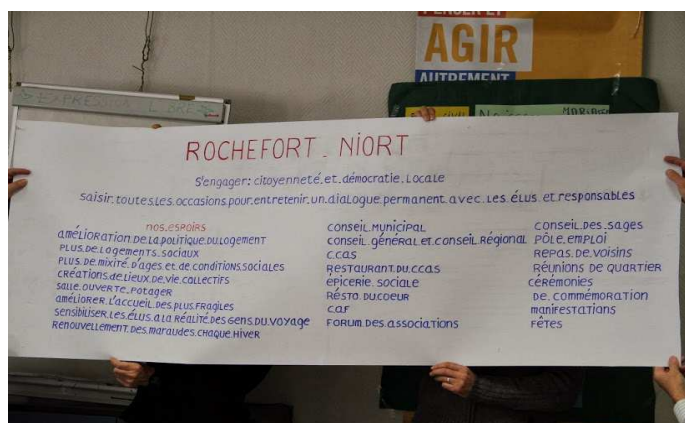 PENSER ET
AGIR
AUTREMENT
EXPRESSION LIBRE
ROCHEFORT - NIORT
S'engager: citoyenneté et démocratie locale
saisir toutes les occasions pour entretenir un dialogue permanent avec les élus et responsables
nos espoirs
amélioration de la politique du logement
plus de logements sociaux
plus de mixité d'ages et de conditions sociales
créations de lieux de vie collectifs
salle ouverte. potager
améliorer l'accueil des plus fragiles
sensibiliser les élus a la réalité des gens du voyage
renouvellement des maraudes chaque hiver
conseil municipal
conseil général et conseil régional
ccas
restaurant du ccas
épicerie sociale
résto du coeur
caf
forum des associations
conseil des sages
pôle emploi
repas de voisins
réunions de quartier
cérémonies
de commémoration
manifestations
fêtes